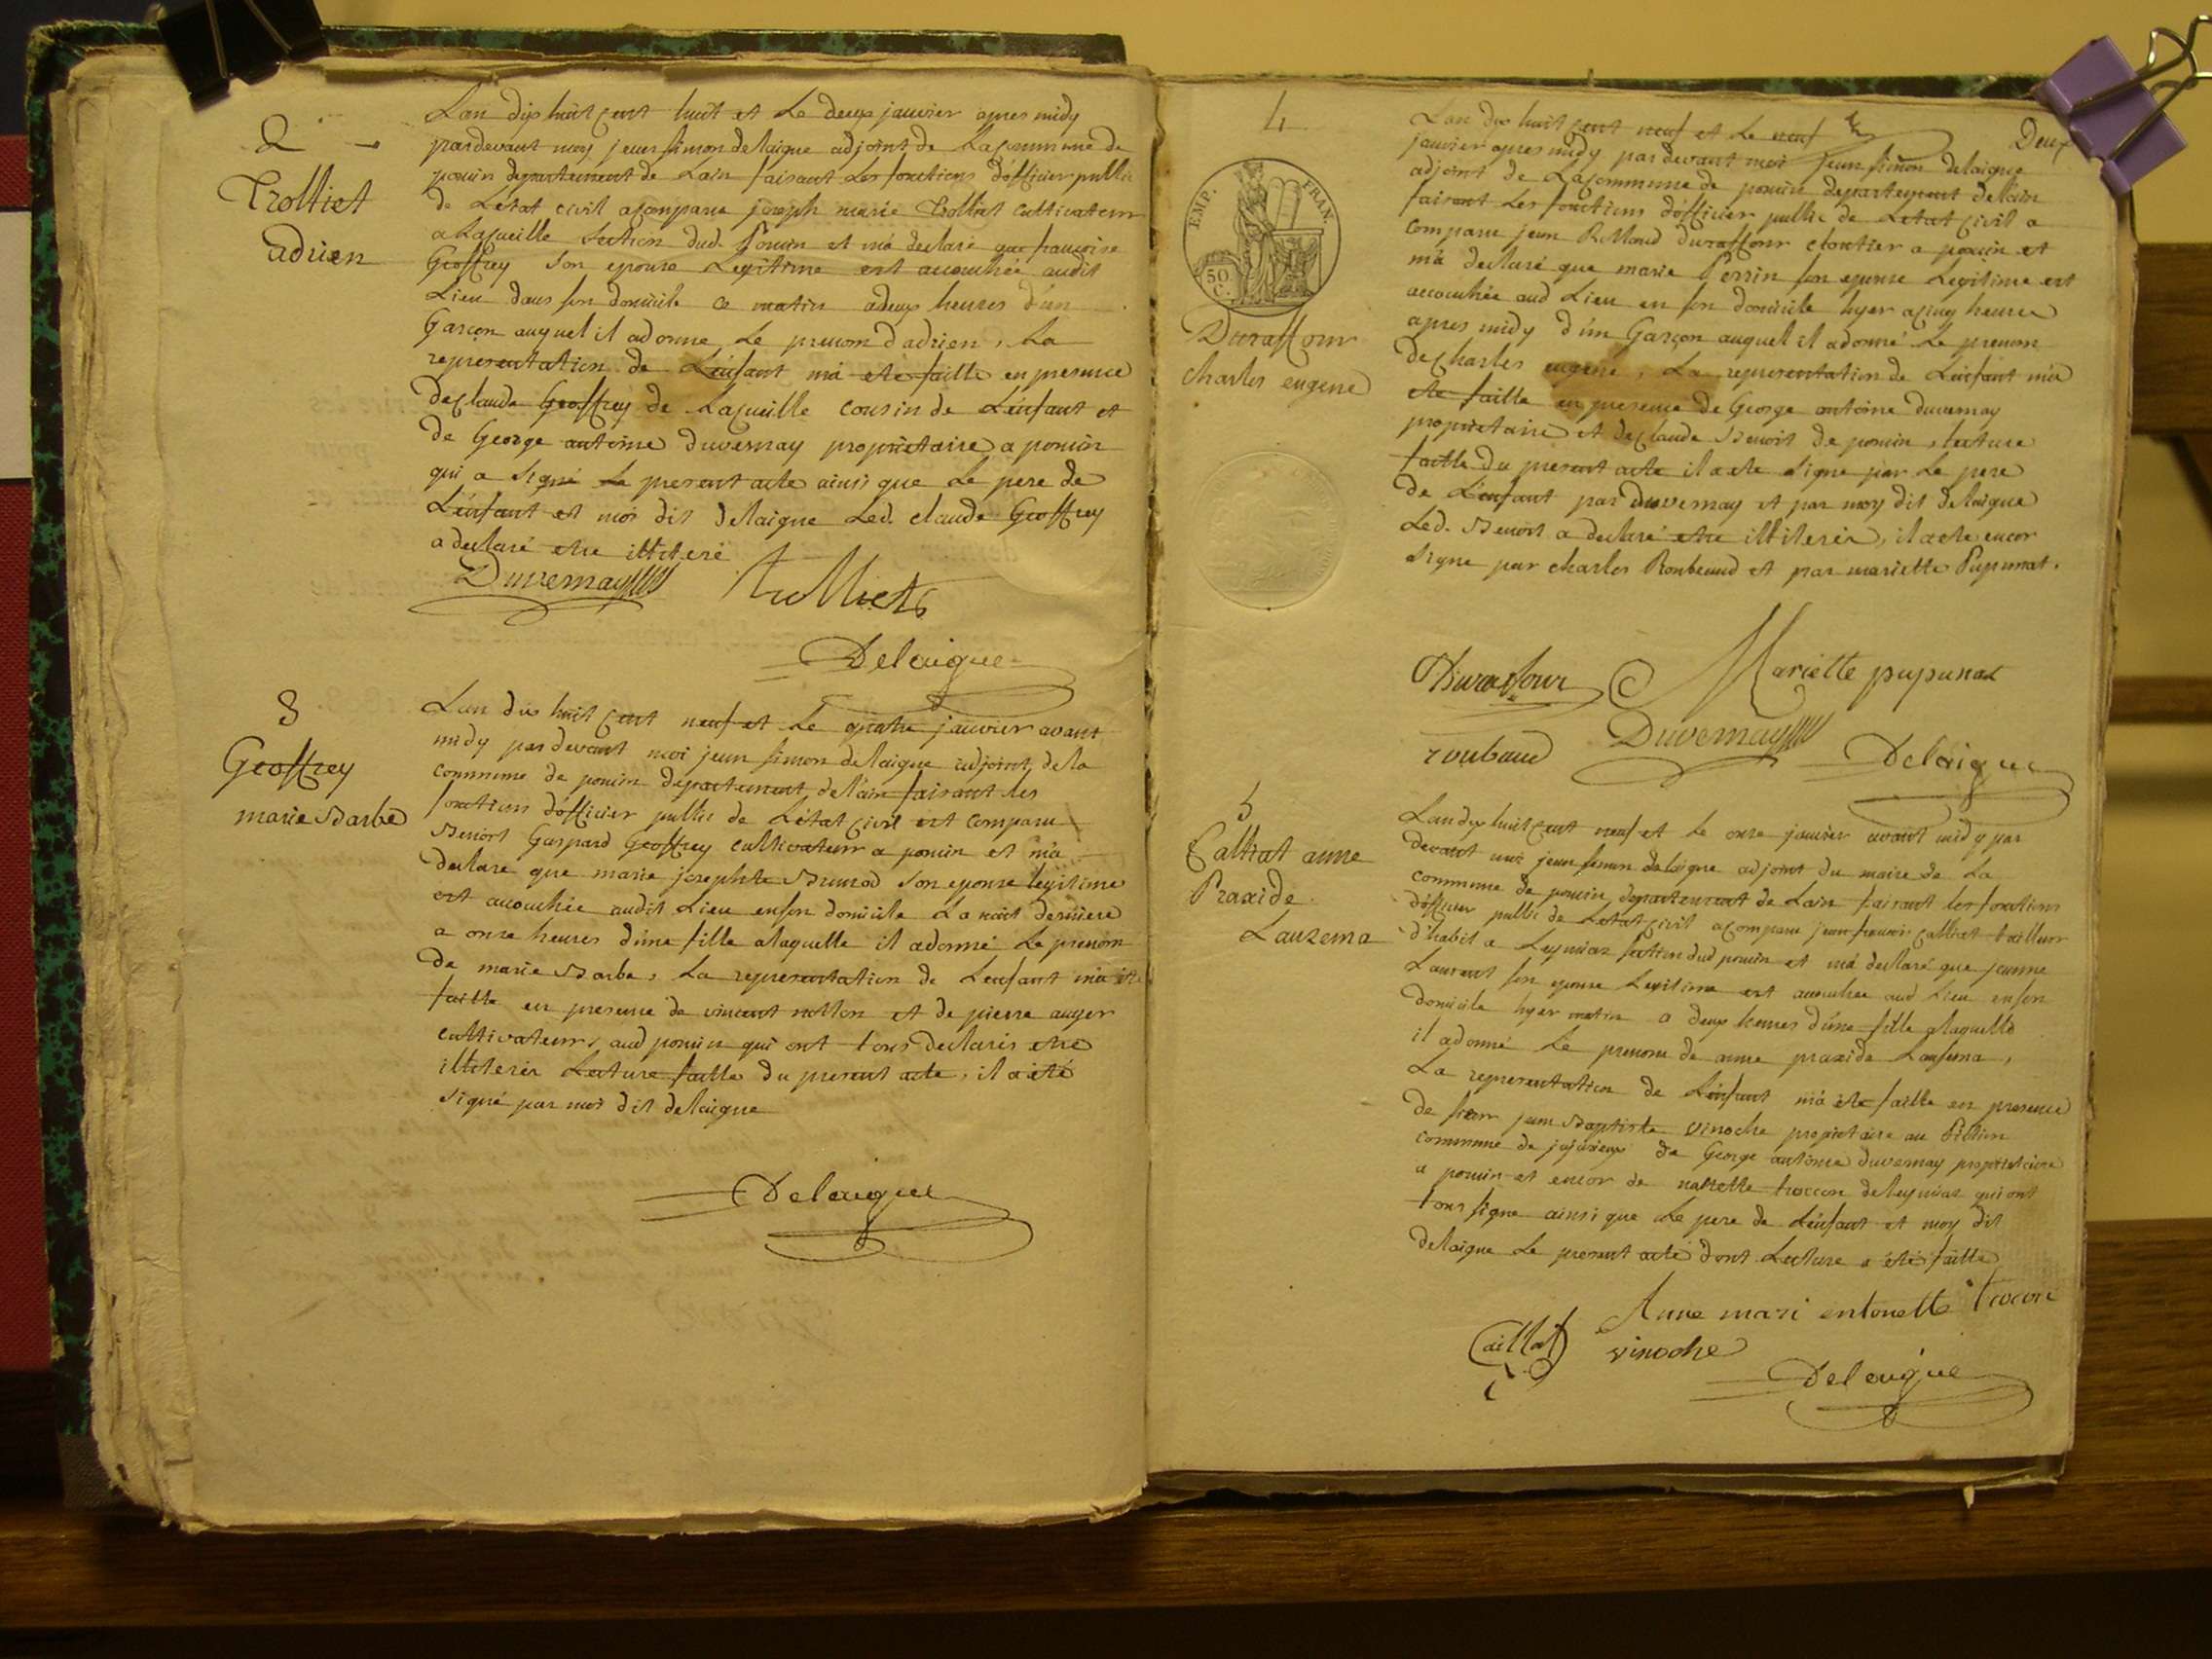 2
Trolliet
adrien
Lan dix huit cent huit et Le deux janvier apres midy
pardevant moy jean simon delaigue adjoint de La commune de
poncin departement de Lain faisant Les fonctions d'officier public
de Letat civil a comparu joseph marie Trolliet cultivateur
a La cueille section dud. Poncin et m'a declaré que françoise
Geoffrey son epouse Legitime est accouchée audit
Lieu dans son domicile ce matin a deux heures d'un
Garçon auquel il a donne Le prenom d'adrien, La
representation de L'enfant m'a ete faitte en presence
de claude Geoffrey de La cueille cousin de L'enfant et
de George antoine Duvernay proprietaire a poncin
qui a signé Le present acte ainsi que Le pere de
L'enfant et moi dit Delaigue Led. claude Geoffrey
a declaré etre illiteré
Duvernay trolliet
Delaigue
3
Geoffrey
marie Barbe
Lan dix huit cent neuf et Le quatre janvier avant
midy par devant moi jean simon delaigue adjoint de la
commune de poncin departement de l'ain faisant les
fonctions d'officier public de L'etat civil est comparu
Benoit Gaspard Geoffrey cultivateur a poncin et m'a
declare que marie josephte Brunod son epouse legitime
est accouchée audit Lieu en son domicile La nuit derniere
a onze heures d'une fille a laquelle il a donné Le prenom
de marie Barbe, La representation de L'enfant m'a été
faitte en presence de vincent et de pierre auger
cultivateurs aud poncin qui ont tous declarés etre
illiterés Lecture faitte du present acte, il a eté
signé par moi dit delaigue
Delaigue
Deux
4
TEMP. FRAN.
50 C.
Duraffour
charles eugene
Lan dix huit cent neuf et Le neuf
janvier apres midy par devant moi jean simon delaigue
adjoint de La commune de poncin departement de lain
faisant Les fonctions d'officier public de Letat civil a
comparu jean Duraffour cloutier a poncin et
m'a declaré que marie Perrin son epouse Legitime est
accouchée aud Lieu en son domicile hyer a cinq heures
apres midy d'un Garçon auquel il a donné Le prenom
de charles eugene, La representation de L'enfant m'a
ete faitte en presence de George antoine duvernay
proprietaire et de claude Benoit de poncin, lecture
faitte du present acte il a ete signe par Le pere
de L'enfant par Duvernay et par moy dit delaigue
Led. Benoit a declaré etre illiterés, il a ete encor
signe par charles Roubeaud et par mariette Pupunat.
Duraffour Mariette pupunat
roubaud Duvernay Delaigue
5
Calliat anne
Praxide
Lauzema
Lan dix huit cent neuf et Le onze janvier avant midy par
devant moi jean simon delaigue adjoint du maire de La
commune de poncin departement de Lain faisant les fonctions
d'officier public de Letat civil a comparu jean francois Calliat tailleur
d'habit a Leymiaz section dud poncin et m'a declaré que jeanne
Laurent son epouse Legitime est accouchée aud Lieu en son
domicile hyer matin a deux heures d'une fille a laquelle
il a donné Le prenom de anne praxide Lauzema,
La representation de L'enfant m'a été faitte en presence
de sieur jean Baptiste vinoche proprietaire au
commune de jujurieux de George antoine duvernay proprietaire
a poncin et encor de troccon de leymiaz qui ont
tous signe ainsi que Le pere de L'enfant et moy dit
delaigue Le present acte dont Lecture a été faitte
Anne mari entonette trocon
Caillat vinoche
Delaigue